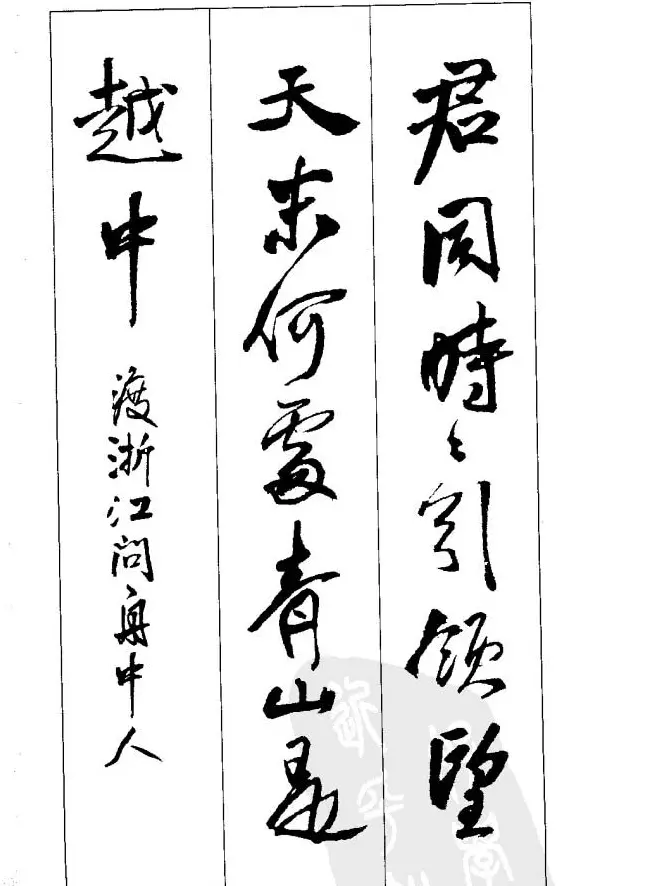 君同時〻引領望
天末何處青山是
越中
渡浙江問舟中人